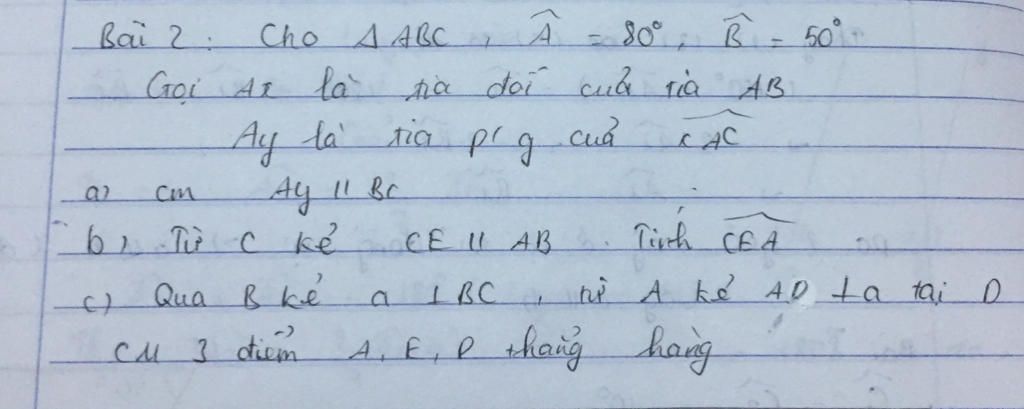 Bài 2 : Cho Δ ABC , Â = 80°, B̂ = 50°
Gọi Ax là tia đối của tia AB
Ay là tia p/g của xAC
a) cm Ay // BC
b) Từ C kẻ CE // AB . Tính CEA
c) Qua B kẻ a ⊥ BC , từ A kẻ AD ⊥ a tại D
CM 3 điểm A, E, D thẳng hàng